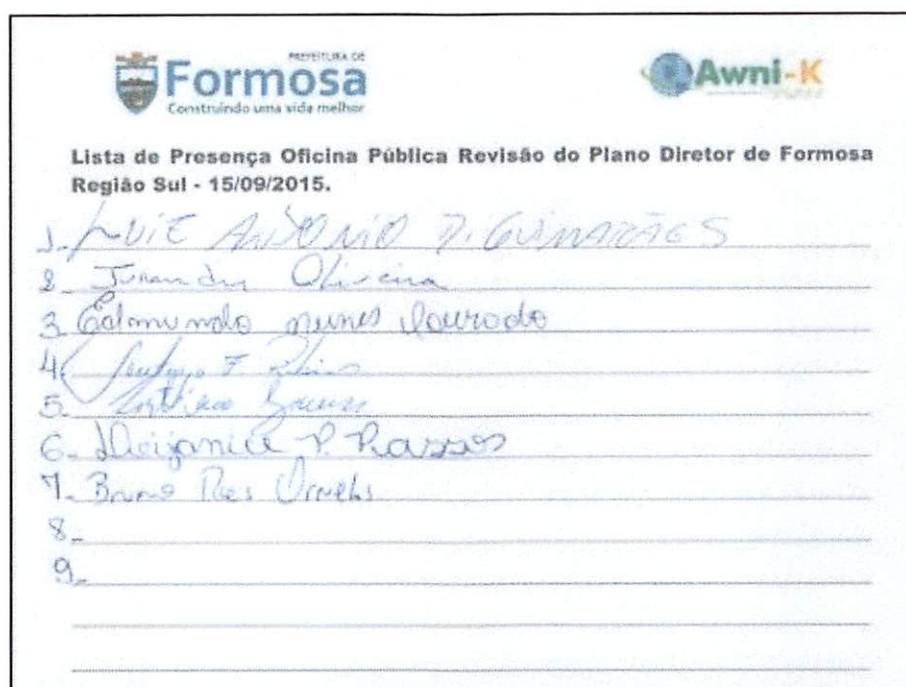 PREFEITURA DE
Formosa
Construindo uma vida melhor
Awni-K
Lista de Presença Oficina Pública Revisão do Plano Diretor de Formosa
Região Sul - 15/09/2015.
1- LUIZ ANTONIO P. GUIMARÃES
2- Jurandir Oliveira
3- Edmundo nunes Dourado
4-
5-
6- P. Passos
7- Bruno Reis Ornelas
8-
9-